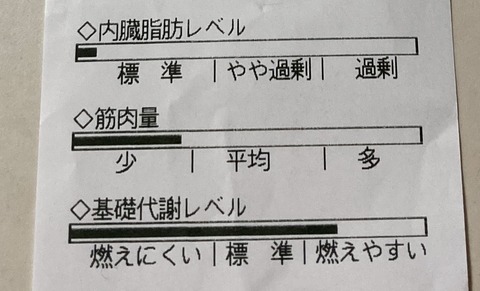 ◇内臓脂肪レベル
標 準 | やや過剰 | 過剰
◇筋肉量
少 | 平均 | 多
◇基礎代謝レベル
燃えにくい | 標 準 | 燃えやすい